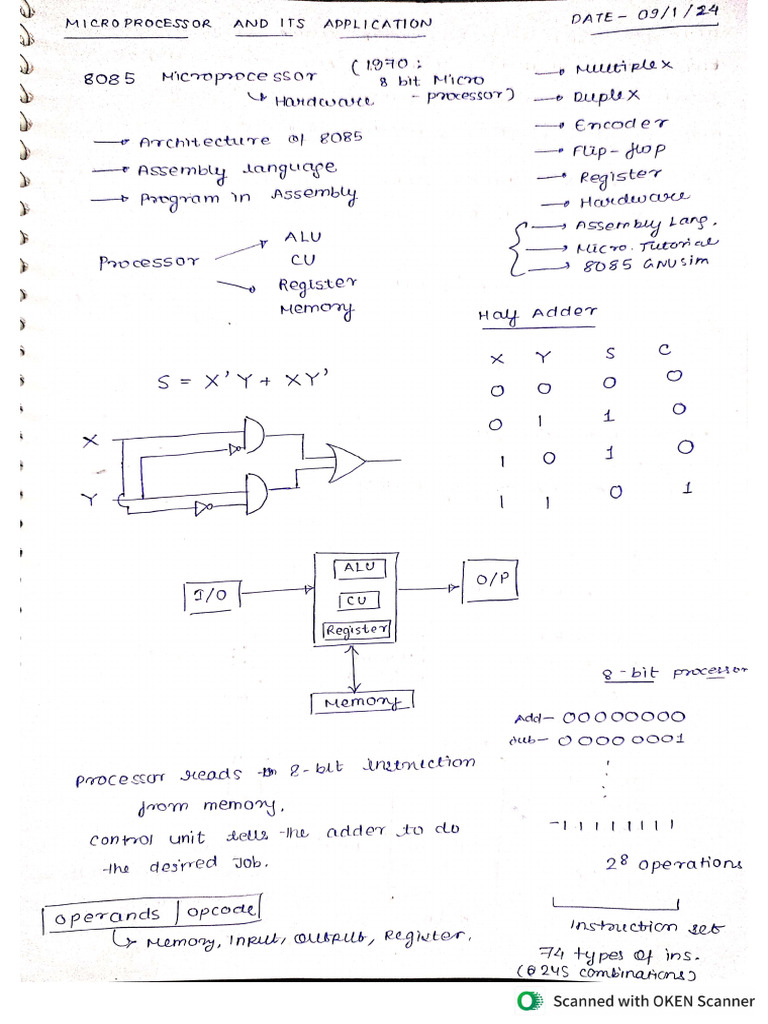 MICROPROCESSOR AND ITS APPLICATION
DATE - 09/1/24
8085 Microprocessor (1970 :
8 bit Micro
↳ Hardware - processor)
→ Architecture of 8085
→ Assembly language
→ Program in Assembly
→ Multiplex
→ Duplex
→ Encoder
→ Flip-flop
→ Register
→ Hardware
→ Assembly Lang.
→ Micro. Tutorial
→ 8085 GNUsim
Processor
ALU
CU
Register
Memory
Half Adder
X Y S C
0 0 0 0
0 1 1 0
1 0 1 0
1 1 0 1
S = X'Y + XY'
X
Y
I/O
ALU
CU
Register
O/P
Memory
8-bit processor
Add- 00000000
sub- 00000001
- 1 1 1 1 1 1 1 1
2⁸ operations
Instruction set
74 types of ins.
(246 combinations)
Processor reads 8-bit instruction
from memory.
Control unit tells the adder to do
the desired Job.
operands | opcode
↳ Memory, Input, Output, Register.
Scanned with OKEN Scanner